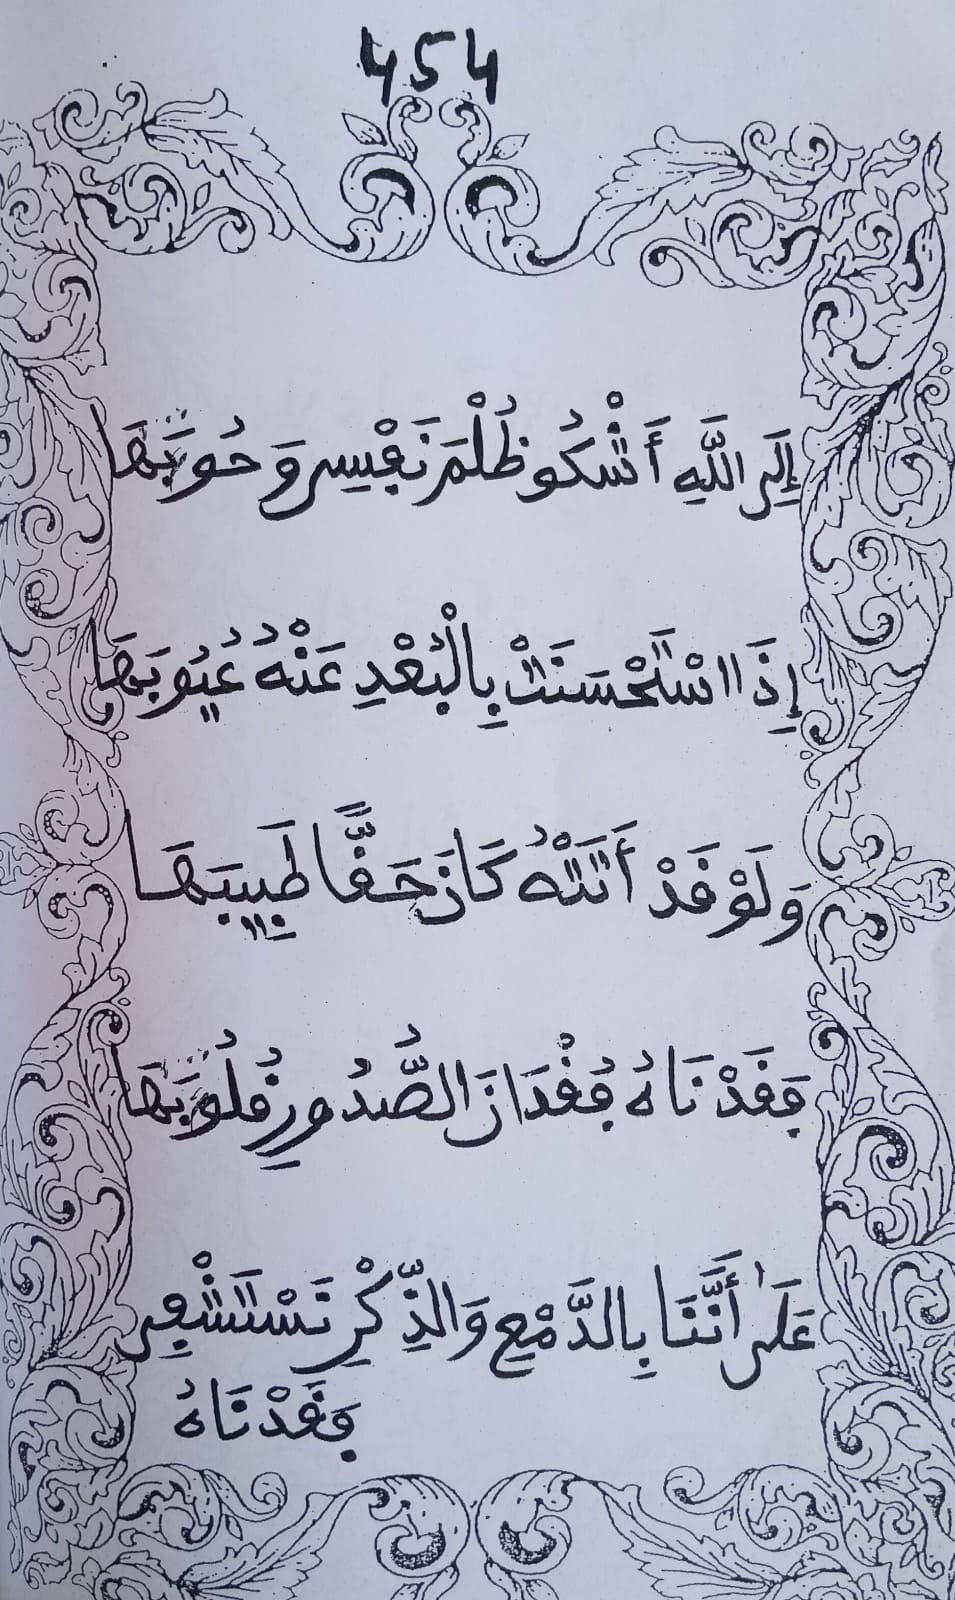 454
إِلَى اللَّهِ أَشْكُو ظُلْمَ نَفْسِي وَحُوبَهَا
إِذَا اسْتَحْسَنَتْ بِالْبُعْدِ عَنْهُ عُيُوبَهَا
وَلَوْ قَدْ أَتَتْهُ كَانَ حَقًّا طَبِيبَهَا
فَقَدْنَاهُ فِقْدَانَ الصُّدُورِ قُلُوبَهَا
عَلَى أَنَّنَا بِالدَّمْعِ وَالذِّكْرِ نَسْتَشْفِي
فَقَدْنَاهُ